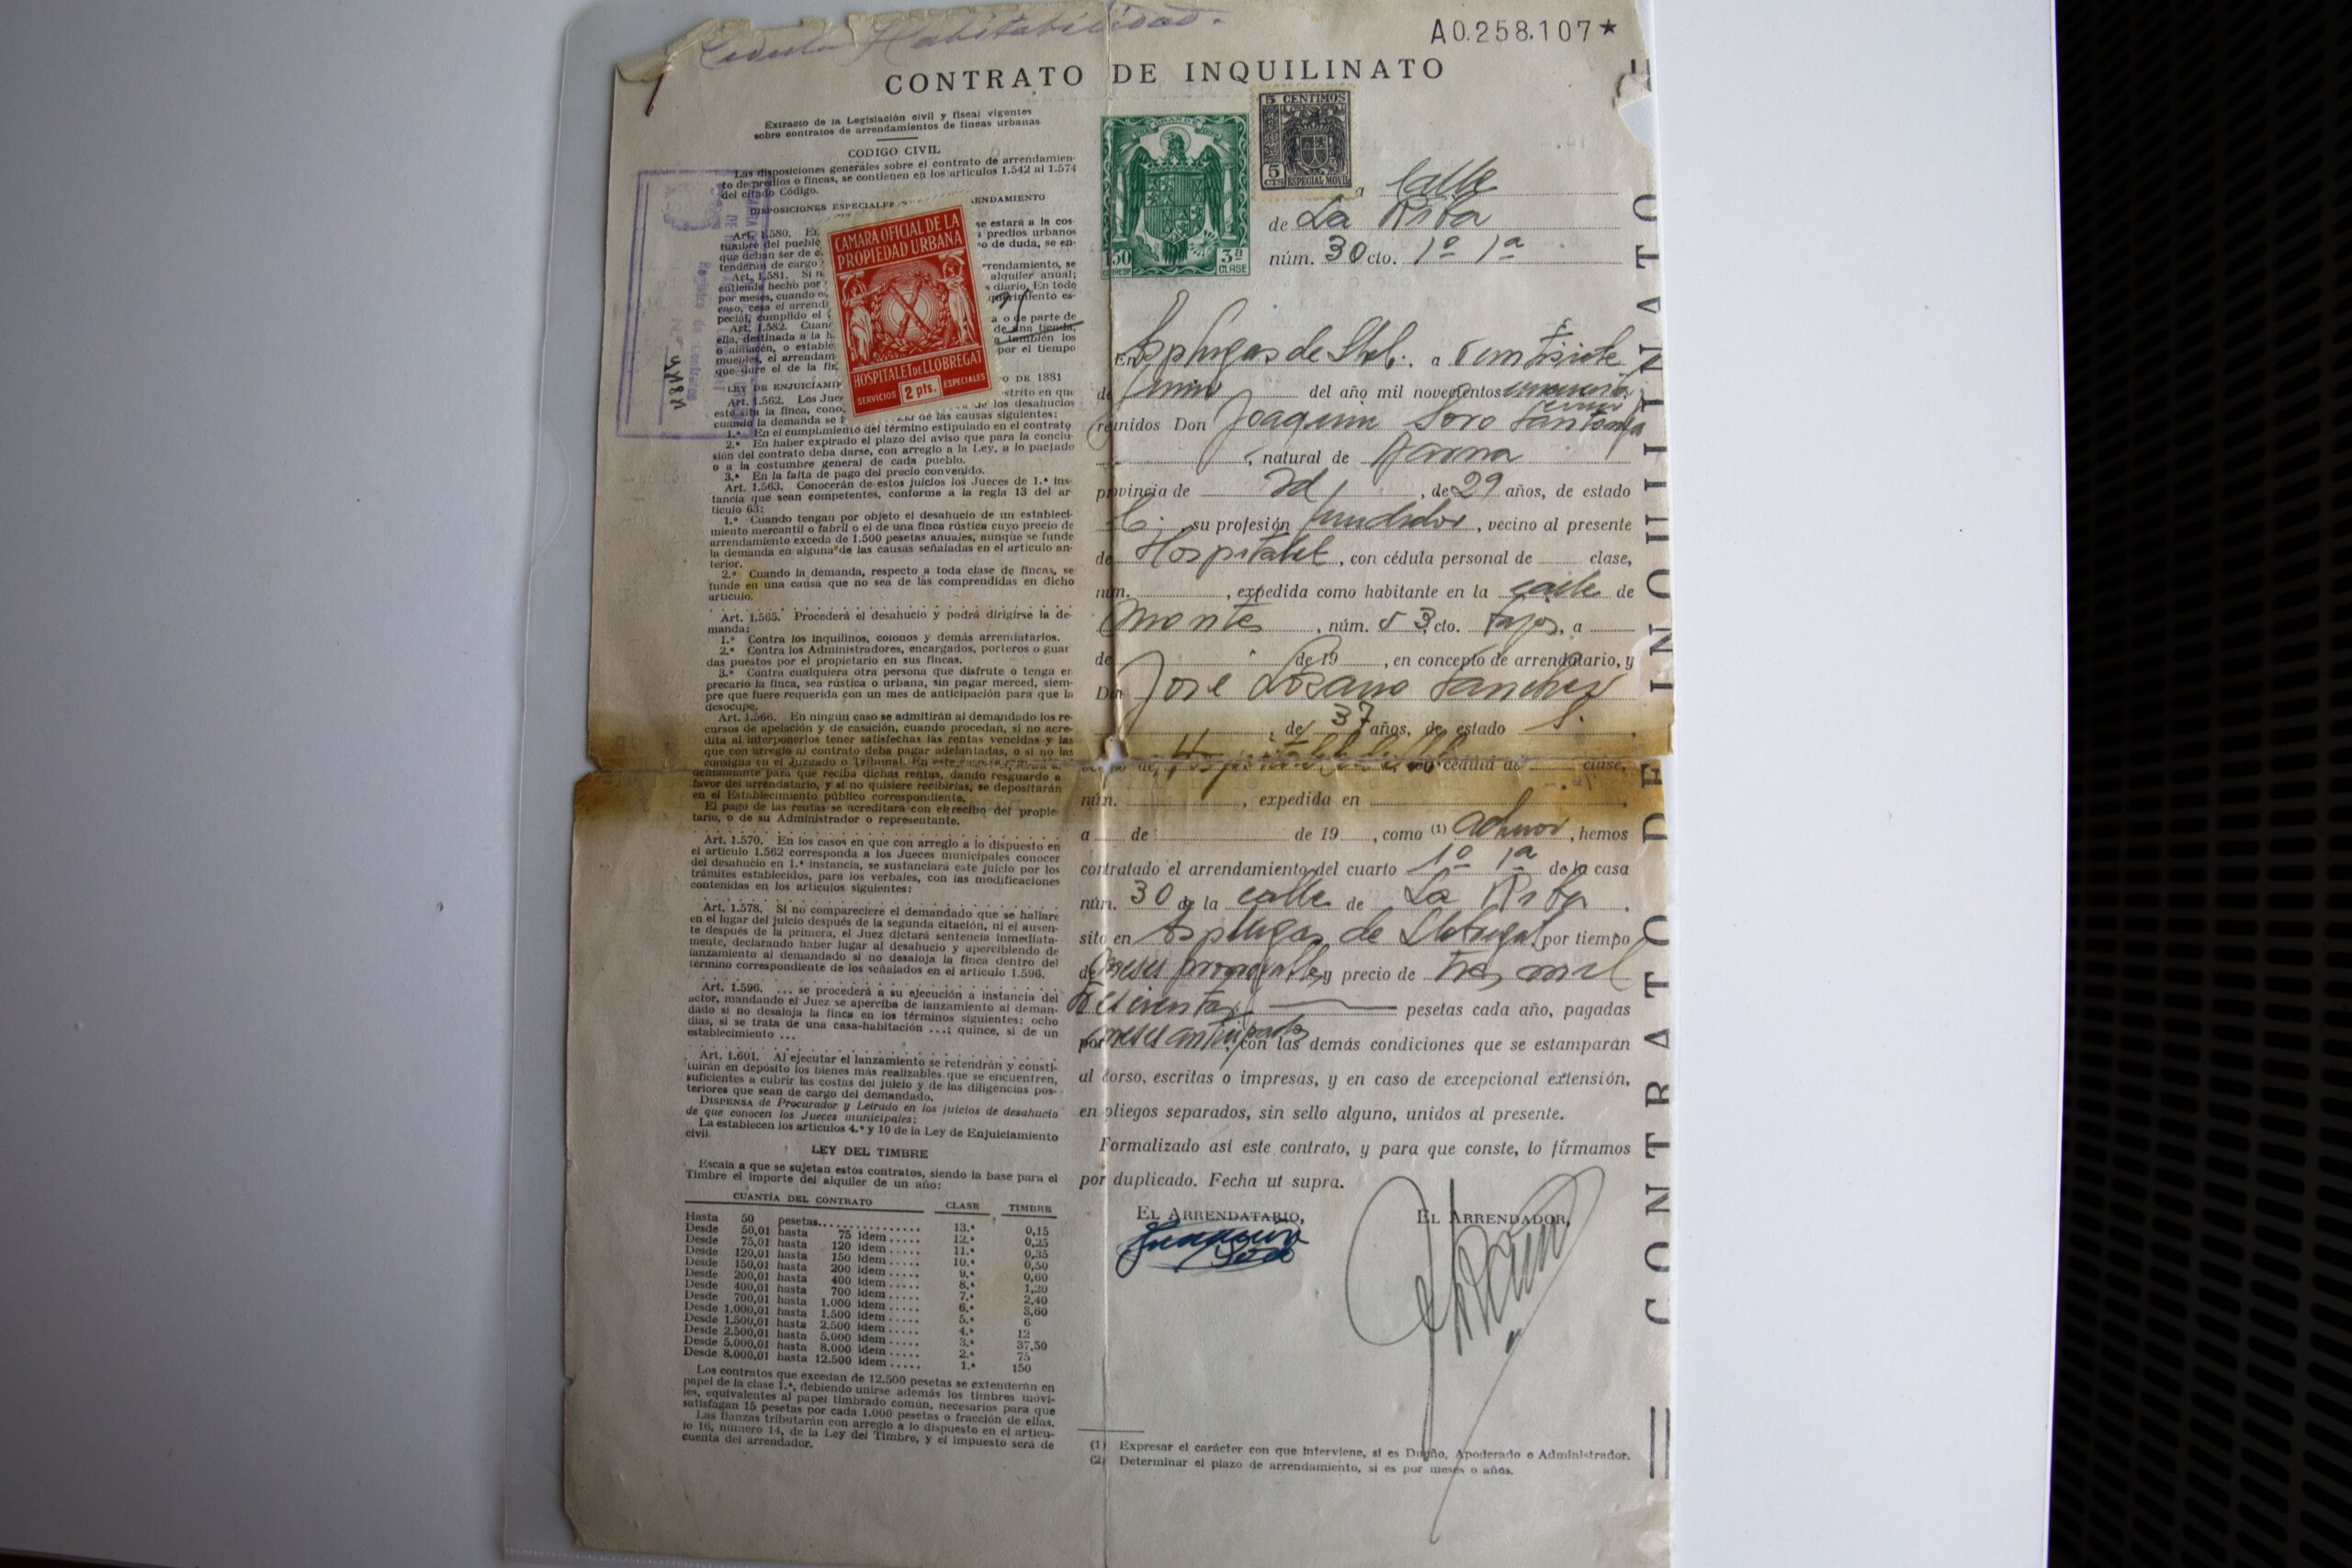 Cédula Habitabilidad.
A0.258.107*
CONTRATO DE INQUILINATO
Extracto de la Legislación civil y fiscal vigentes
sobre contratos de arrendamientos de fincas urbanas
CODIGO CIVIL
Las disposiciones generales sobre el contrato de arrendamien-
to de predios o fincas, se contienen en los artículos 1.542 al 1.574
del citado Código.
DISPOSICIONES ESPECIALES
ENDAMIENTO
Art. 1.580.
se estará a la cos-
tumbre del pueblo
predios urbanos
que deban ser de
o de duda, se en-
tenderán de cargo
Art. 1.581. Si n
rrendamiento, se
entiende hecho por
alquiler anual;
por meses, cuando es
diario. En todo
caso, cesa el arrend
querimiento es-
pecial, cumplido el
Art. 1.582. Cuan
a o de parte de
ella, destinada a la h
de una tienda,
o almacén, o estable
también los
muebles, el arrendam
por el tiempo
que dure el de la fin
LEY DE ENJUICIAMI
O DE 1881
Art. 1.562. Los Jue
strito en que
esté sita la finca, cono
los desahucios
cuando la demanda se
de las causas siguientes:
1.ª En el cumplimiento del término estipulado en el contrato
2.ª En haber expirado el plazo del aviso que para la conclu-
sión del contrato deba darse, con arreglo a la Ley, a lo pactado
o a la costumbre general de cada pueblo.
3.ª En la falta de pago del precio convenido.
Art. 1.563. Conocerán de estos juicios los Jueces de 1.ª ins-
tancia que sean competentes, conforme a la regla 13 del ar-
tículo 63:
1.º Cuando tengan por objeto el desahucio de un estableci-
miento mercantil o fabril o el de una finca rústica cuyo precio de
arrendamiento exceda de 1.500 pesetas anuales, aunque se funde
la demanda en alguna de las causas señaladas en el artículo an-
terior.
2.º Cuando la demanda, respecto a toda clase de fincas, se
funde en una causa que no sea de las comprendidas en dicho
artículo.
Art. 1.565. Procederá el desahucio y podrá dirigirse la de-
manda:
1.º Contra los inquilinos, colonos y demás arrendatarios.
2.º Contra los Administradores, encargados, porteros o guar
das puestos por el propietario en sus fincas.
3.º Contra cualquiera otra persona que disfrute o tenga en
precario la finca, sea rústica o urbana, sin pagar merced, siem-
pre que fuere requerida con un mes de anticipación para que la
desocupe.
Art. 1.566. En ningún caso se admitirán al demandado los re-
cursos de apelación y de casación, cuando procedan, si no acre-
dita al interponerlos tener satisfechas las rentas vencidas y las
que con arreglo al contrato deba pagar adelantadas, o si no las
consigna en el Juzgado o Tribunal. En este caso
demandante para que reciba dichas rentas, dando resguardo a
favor del arrendatario, y si no quisiere recibirlas, se depositarán
en el Establecimiento público correspondiente.
El pago de las rentas se acreditará con el recibo del propie-
tario, o de su Administrador o representante.
Art. 1.570. En los casos en que con arreglo a lo dispuesto en
el artículo 1.562 corresponda a los Jueces municipales conocer
del desahucio en 1.ª instancia, se sustanciará este juicio por los
trámites establecidos, para los verbales, con las modificaciones
contenidas en los artículos siguientes:
Art. 1.578. Si no compareciere el demandado que se hallare
en el lugar del juicio después de la segunda citación, ni el ausen-
te después de la primera, el Juez dictará sentencia inmediata-
mente, declarando haber lugar al desahucio y apercibiendo de
lanzamiento al demandado si no desaloja la finca dentro del
término correspondiente de los señalados en el artículo 1.596.
Art. 1.596. ... se procederá a su ejecución a instancia del
actor, mandando el Juez se aperciba de lanzamiento al deman-
dado si no desaloja la finca en los términos siguientes: ocho
días, si se trata de una casa-habitación ...; quince, si de un
establecimiento ...
Art. 1.601. Al ejecutar el lanzamiento se retendrán y consti-
tuirán en depósito los bienes más realizables que se encuentren,
suficientes a cubrir las costas del juicio y de las diligencias pos-
teriores que sean de cargo del demandado.
DISPENSA de Procurador y Letrado en los juicios de desahucio
de que conocen los Jueces municipales:
La establecen los artículos 4.º y 10 de la Ley de Enjuiciamiento
civil.
LEY DEL TIMBRE
Escala a que se sujetan estos contratos, siendo la base para el
Timbre el importe del alquiler de un año:
CUANTÍA DEL CONTRATO CLASE TIMBRE
Hasta 50 pesetas................ 13.ª 0,15
Desde 50,01 hasta 75 idem ..... 12.ª 0,25
Desde 75,01 hasta 120 idem ..... 11.ª 0,35
Desde 120,01 hasta 150 idem ..... 10.ª 0,50
Desde 150,01 hasta 200 idem ..... 9.ª 0,60
Desde 200,01 hasta 400 idem ..... 8.ª 1,20
Desde 400,01 hasta 700 idem ..... 7.ª 2,40
Desde 700,01 hasta 1.000 idem ..... 6.ª 3,60
Desde 1.000,01 hasta 1.500 idem ..... 5.ª 6
Desde 1.500,01 hasta 2.500 idem ..... 4.ª 12
Desde 2.500,01 hasta 5.000 idem ..... 3.ª 37,50
Desde 5.000,01 hasta 8.000 idem ..... 2.ª 75
Desde 8.000,01 hasta 12.500 idem ..... 1.ª 150
Los contratos que excedan de 12.500 pesetas se extenderán en
papel de la clase 1.ª, debiendo unirse además los timbres móvi-
les, equivalentes al papel timbrado común, necesarios para que
satisfagan 15 pesetas por cada 1.000 pesetas o fracción de ellas.
Las fianzas tributarán con arreglo a lo dispuesto en el artícu-
lo 16, número 14, de la Ley del Timbre, y el impuesto será de
cuenta del arrendador.
CAMARA OFICIAL DE LA
PROPIEDAD URBANA
HOSPITALET DE LLOBREGAT
SERVICIOS 2 pts. ESPECIALES
Registro de
N.º
150 3ª
CLASE
5 CENTIMOS
5
CTS ESPECIAL MOVIL
a Calle
de La Riba
núm. 30 cto. 1º 1ª
En Esplugas de Llob. a Veintisiete
de Junio del año mil novecientos
reunidos Don Joaquin Soro Santonja
, natural de
provincia de Id, de 29 años, de estado
C. su profesión fundidor, vecino al presente
de Hospitalet, con cédula personal de clase,
núm. , expedida como habitante en la calle de
Montes, núm. 53 cto. bajos, a
de de 19 , en concepto de arrendatario, y
Don José Lozano Sanchez
, de 37 años, de estado S.
de Hospitalet cédula de clase,
núm. , expedida en
a de de 19 , como (1) Admor, hemos
contratado el arrendamiento del cuarto 1º 1ª de la casa
núm. 30 de la calle de La Riba.
sito en Esplugas de Llobregat por tiempo
de meses prorrogables y precio de tres mil
pesetas cada año, pagadas
por meses anticipados, con las demás condiciones que se estamparán
al dorso, escritas o impresas, y en caso de excepcional extensión,
en pliegos separados, sin sello alguno, unidos al presente.
Formalizado así este contrato, y para que conste, lo firmamos
por duplicado. Fecha ut supra.
EL ARRENDATARIO,
EL ARRENDADOR,
Joaquin
Soro
(1) Expresar el carácter con que interviene, si es Dueño, Apoderado o Administrador.
(2) Determinar el plazo de arrendamiento, si es por meses o años.
CONTRATO DE INQUILINATO